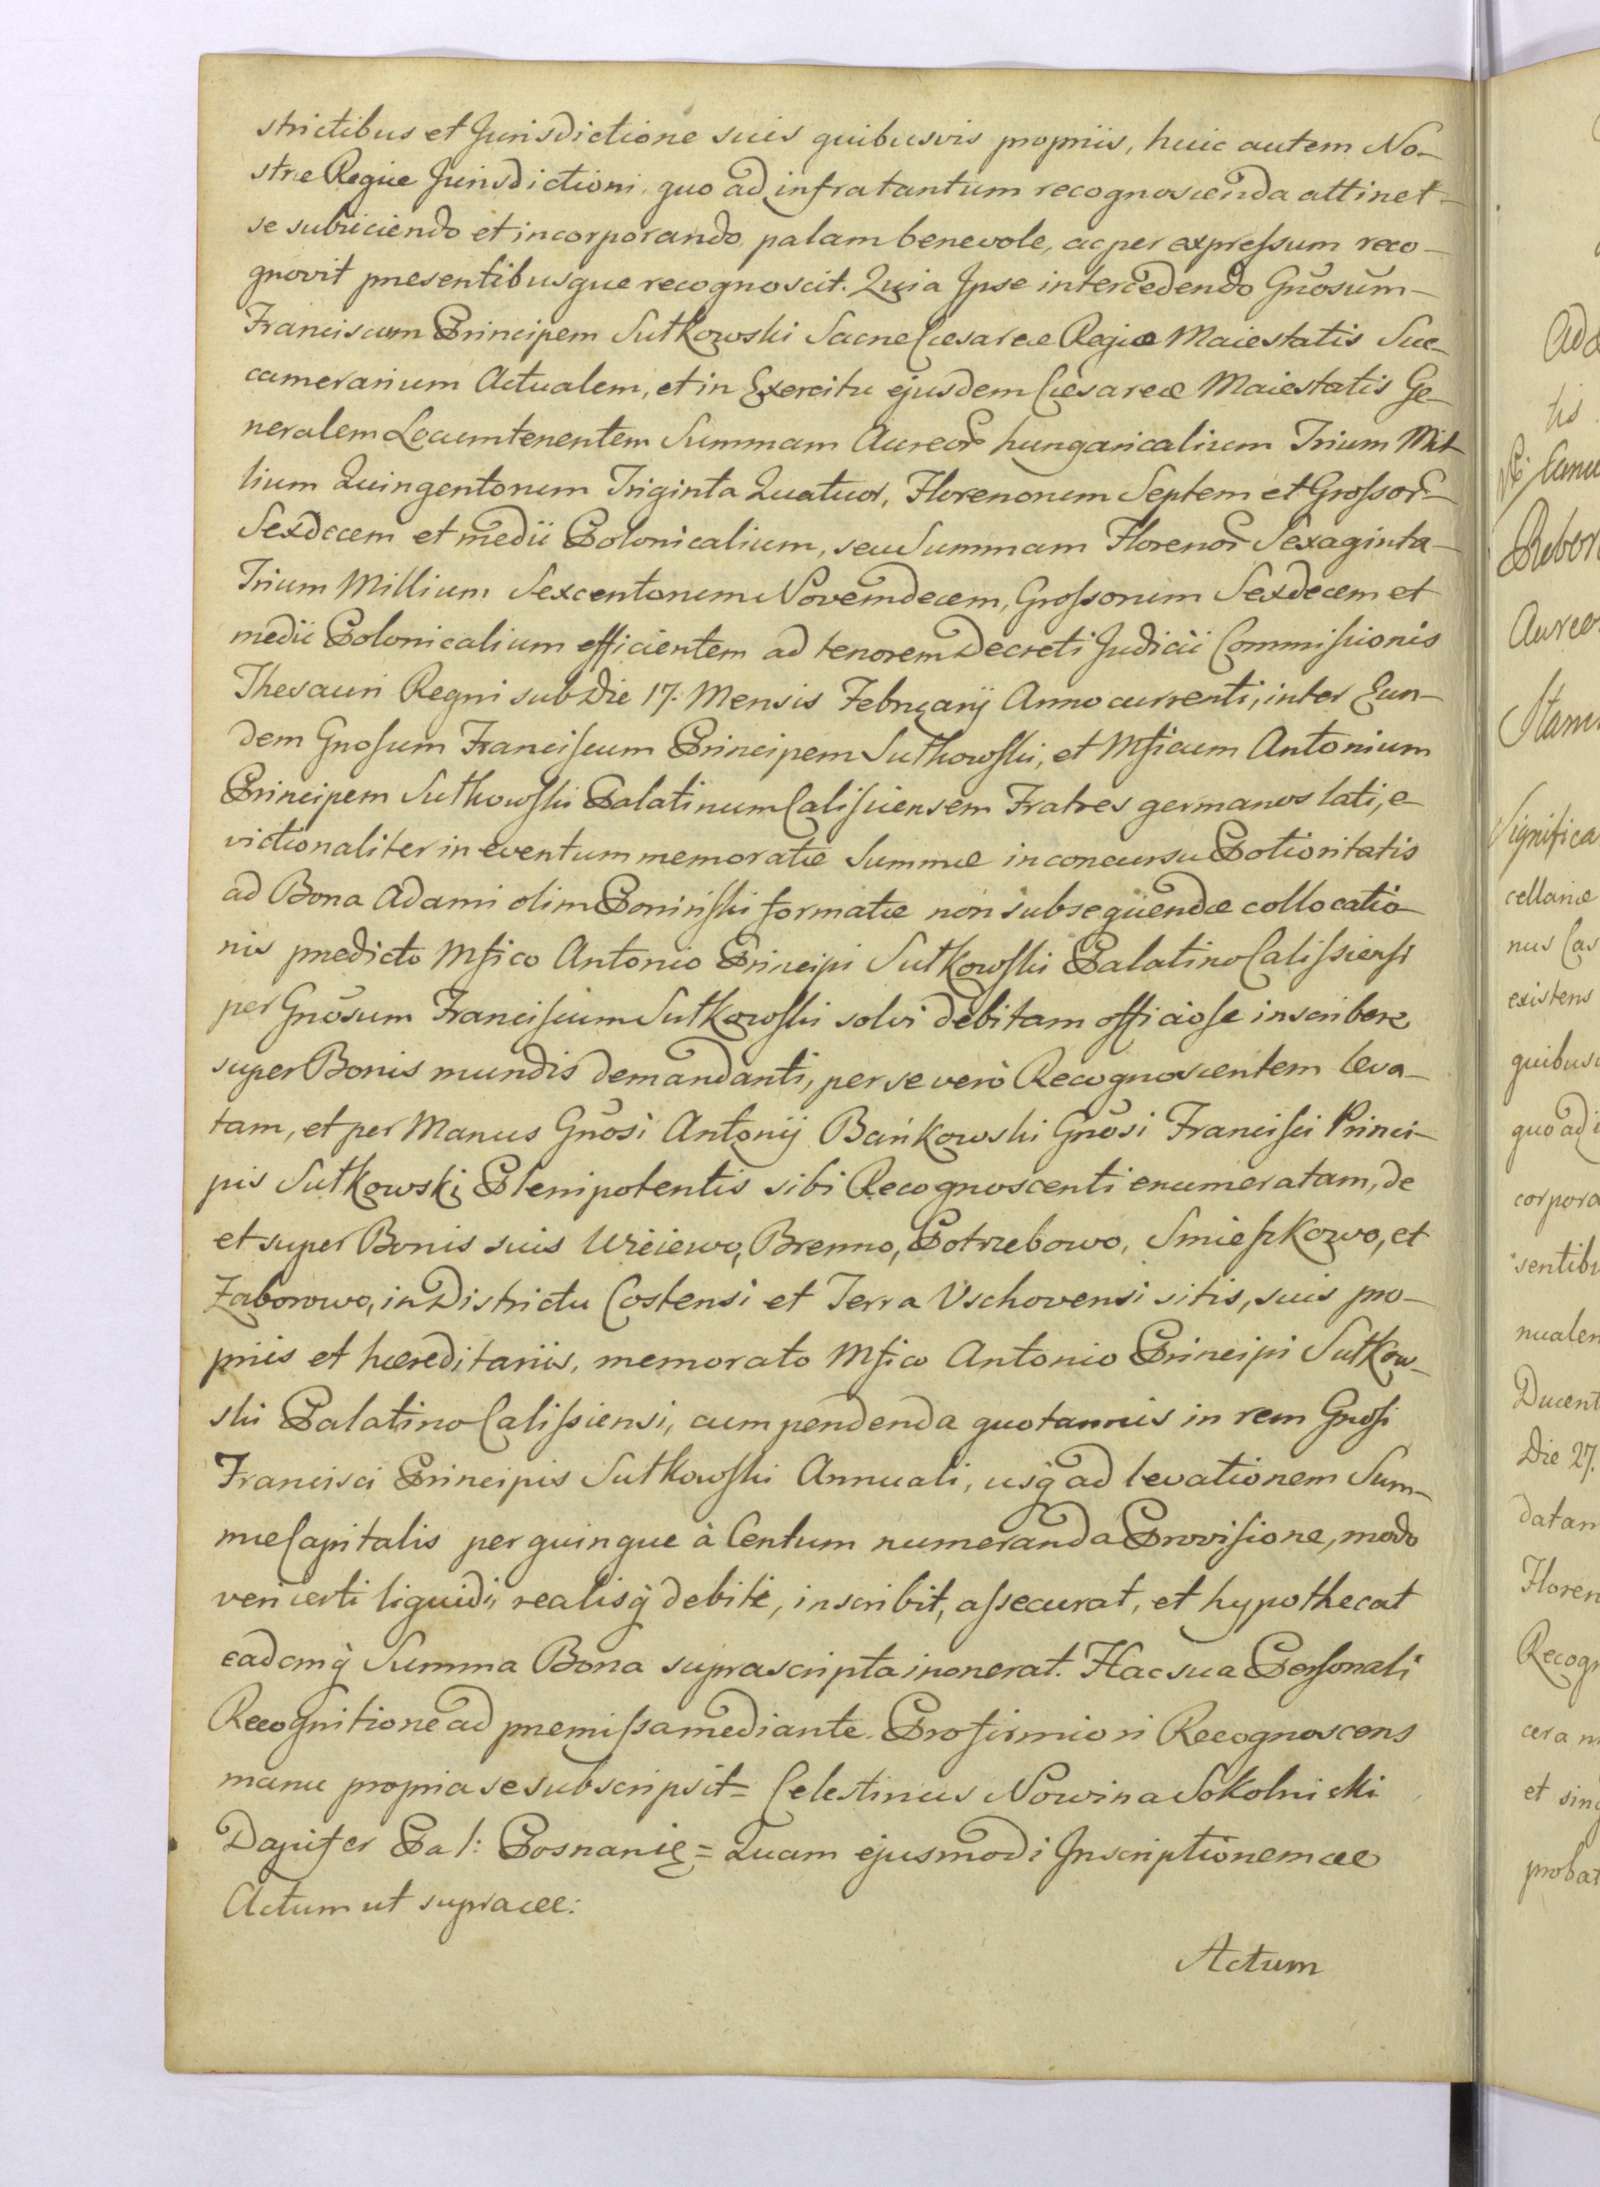 strictibus et Jurisdictione suis quibusvis propriis, huic autem No-
stræ Regiæ Jurisdictioni quo ad infra tantum recognoscenda attinet-
se subiiciendo et incorporando palam benevole, ac per expreſsum reco-
gnovit præsentibusque recognoscit. Quia Ipse intercedendo Gnõsum-
Franciscum Principem Sułkowski Sacræ Cæsareæ Regiæ Maiestatis Suc-
camerarium Actualem, et in Exercitu ejusdem Cæsareæ Maiestatis Ge-
neralem Locumtenentem Summam Aureor̃ hungaricalium Trium Mil-
lium Quingentorum Triginta Quatuor, Florenorum Septem et Groſsor̃-
Sexdecem et medii Polonicalium, seu Summam Florenor̃ Sexaginta-
Trium Millium Sexcentorum Novemdecem, Groſsorum Sexdecem et
medii Polonicalium efficientem ad tenorem Decreti Judicii Commiſsionis
Thesauri Regni sub Die 17. Mensis February Anno currenti, inter Eun-
dem Gnoſum Franciſcum Principem Sułkowſki, et Mficum Antonium
Principem Sułkowſki Palatinum Caliſsiensem Fratres germanos lati, e-
victionaliter in eventum memoratæ Summæ in concursu Potioritatis
ad Bona Adami olim Poninſki formatæ non subsequendæ collocatio-
nis prædicto Mfico Antonio Principi Sułkowſki Palatino Caliſsienſi
per Gnõsum Franciſcum Sułkowſki solvi debitam officioſe inscribere
super Bonis mundis demandanti, per se verò Recognoscentem leva-
tam, et per Manus Gnõsi Antonij Bańkowski Gnõsi Franciſci Princi-
pis Sułkowski Plenipotentis sibi Recognoscenti enumeratam, de
et super Bonis suis Wieiewo, Brenno, Potrzebowo, Śmieſzkowo, et
Zaborowo, in Districtu Costensi et Terra Vschovensi sitis, suis pro-
priis et hæreditariis, memorato Mfico Antonio Principi Sułkow-
ski Palatino Caliſsiensi, cum pendenda quotannis in rem Gnoſi
Francisci Principis Sułkowſki Annuali, usq̀ ad levationem Sum-
mæ Capitalis per quinque à Centum numeranda Proviſione, modo
veri certi liquidi realisq̀ debiti, inscribit, aſsecurat, et hypothecat
eademq̀ Summa Bona suprascripta inonerat. Hac sua Perſonali
Recognitione ad præmiſsa mediante. Pro firmiori Recognoscens
manu propria se subscripsit = Celestinus Nowina Sokolnicki
Dapifer Pal: Posnanię = Quam ejusmodi Inscriptionem &c
Actum ut supra &c:
Actum